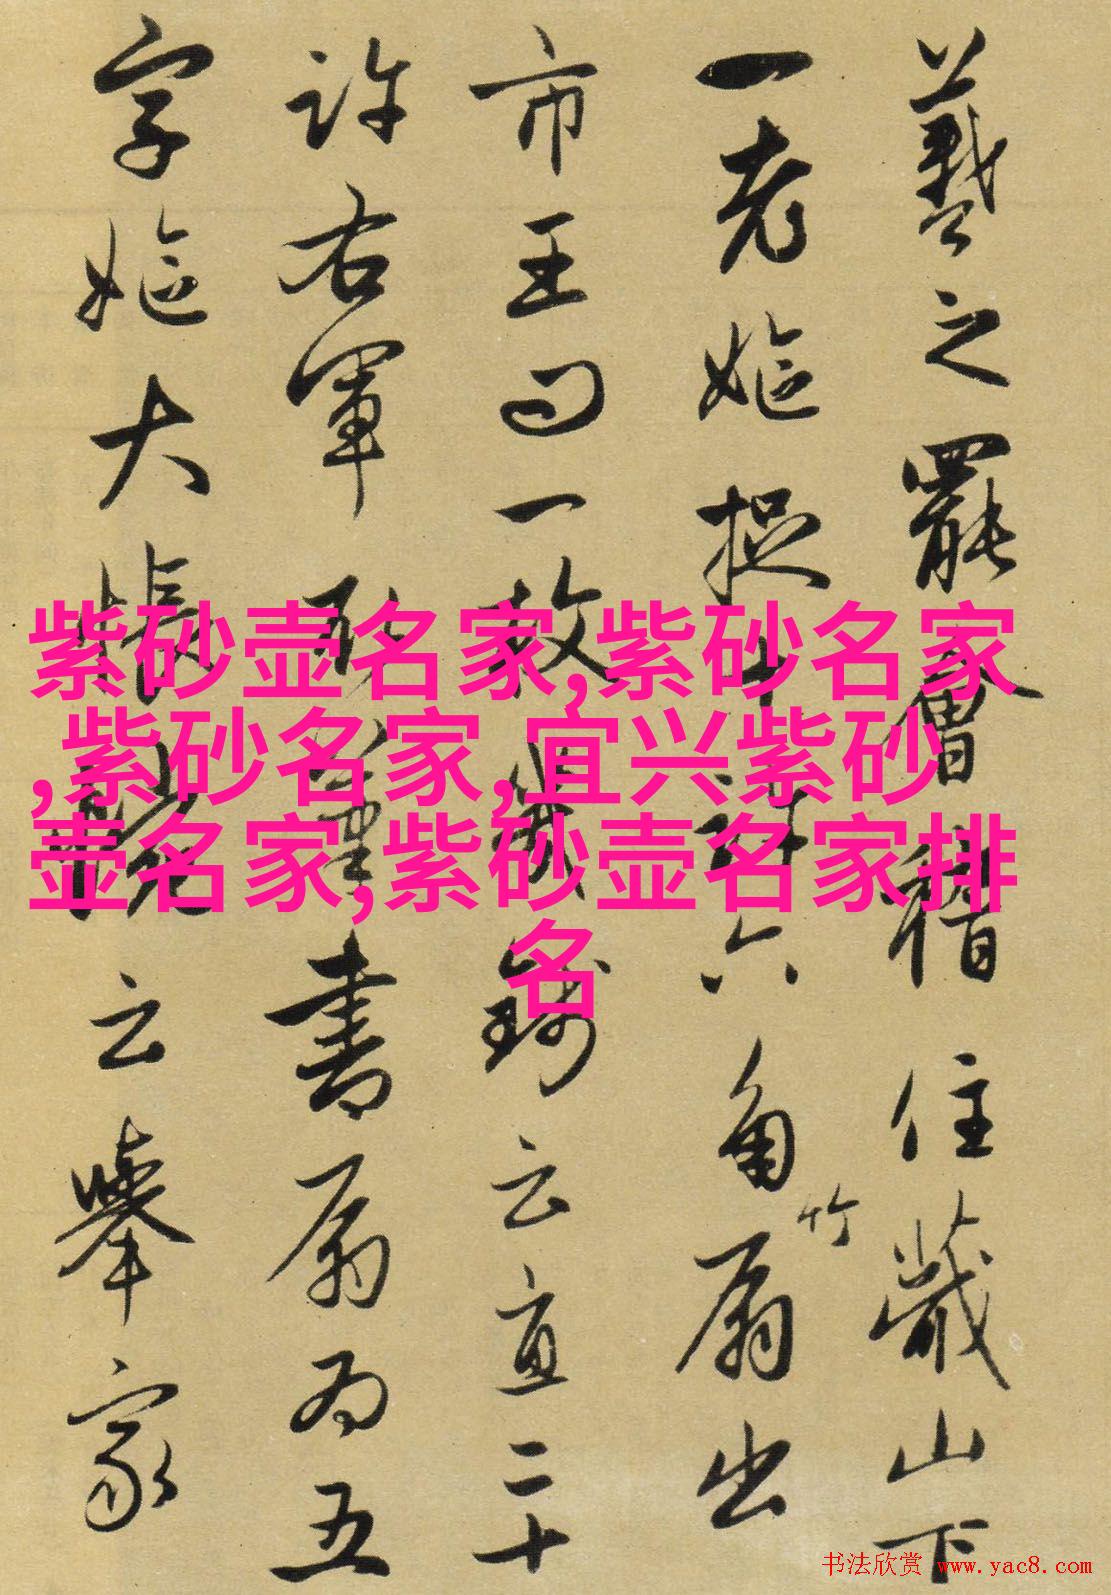 羲之罷會稽住蕺山下
一老嫗捉十許六角竹扇出
市王問一枚幾錢云直二十
許右軍取筆書扇為五
字嫗大悵惋云舉家
紫砂壶名家,紫砂名家
,紫砂名家,宜兴紫砂
壶名家,紫砂壶名家排
名
书法欣赏 www.yac8.com